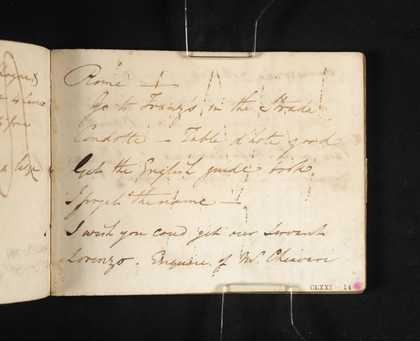 Rome —
Go to Franz's in the Strada
Condotte — Table d'hote good
Get the English guide book
I forget the name —
I wish you coud get our Servant
Lorenzo. Enquire of Mr Chiaveri
CLXXI - 14